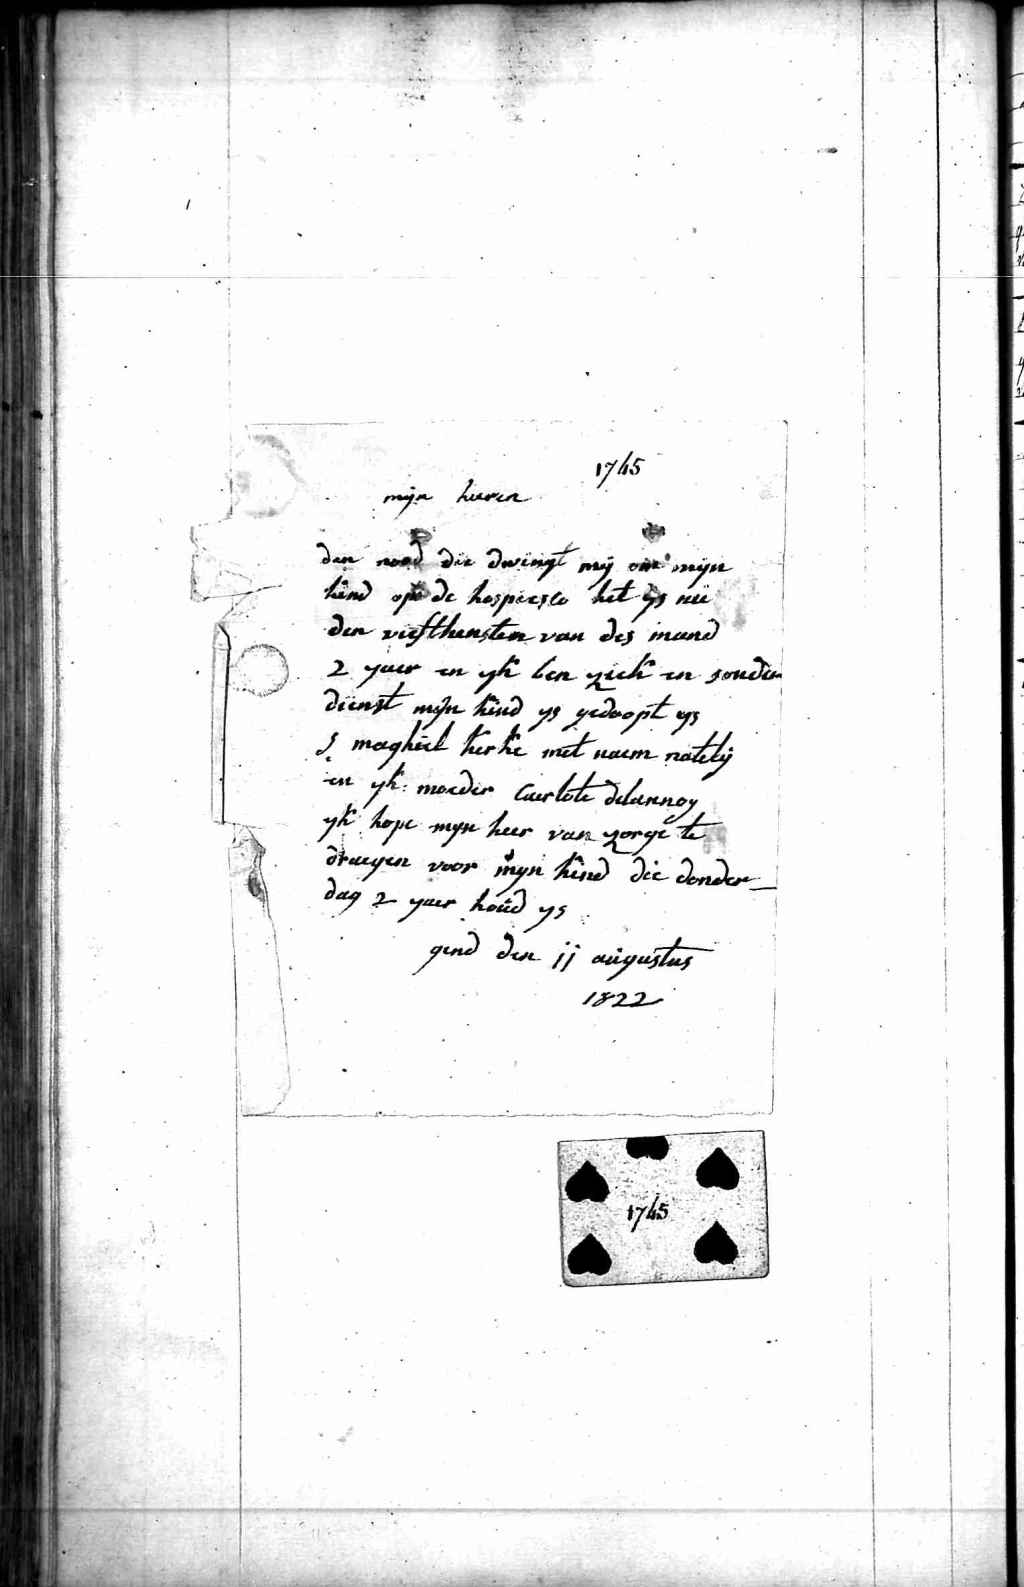 1745
mijn heeren
den nood die dwingt mij om mijn
kind op de hospiesse het ys nu
den viefthensten van des mand
2 yaer en yk ben zick en sonder
dienst mijn kind ys gedoopt ys
S maghiel kerke met naem natelij
en yk moeder Caerlote delannoy
yk hope mijn heer van zorge te
draegen voor mijn kind die donder
dag 2 yaer houd ys
gend den 11 augustus
1822
1745